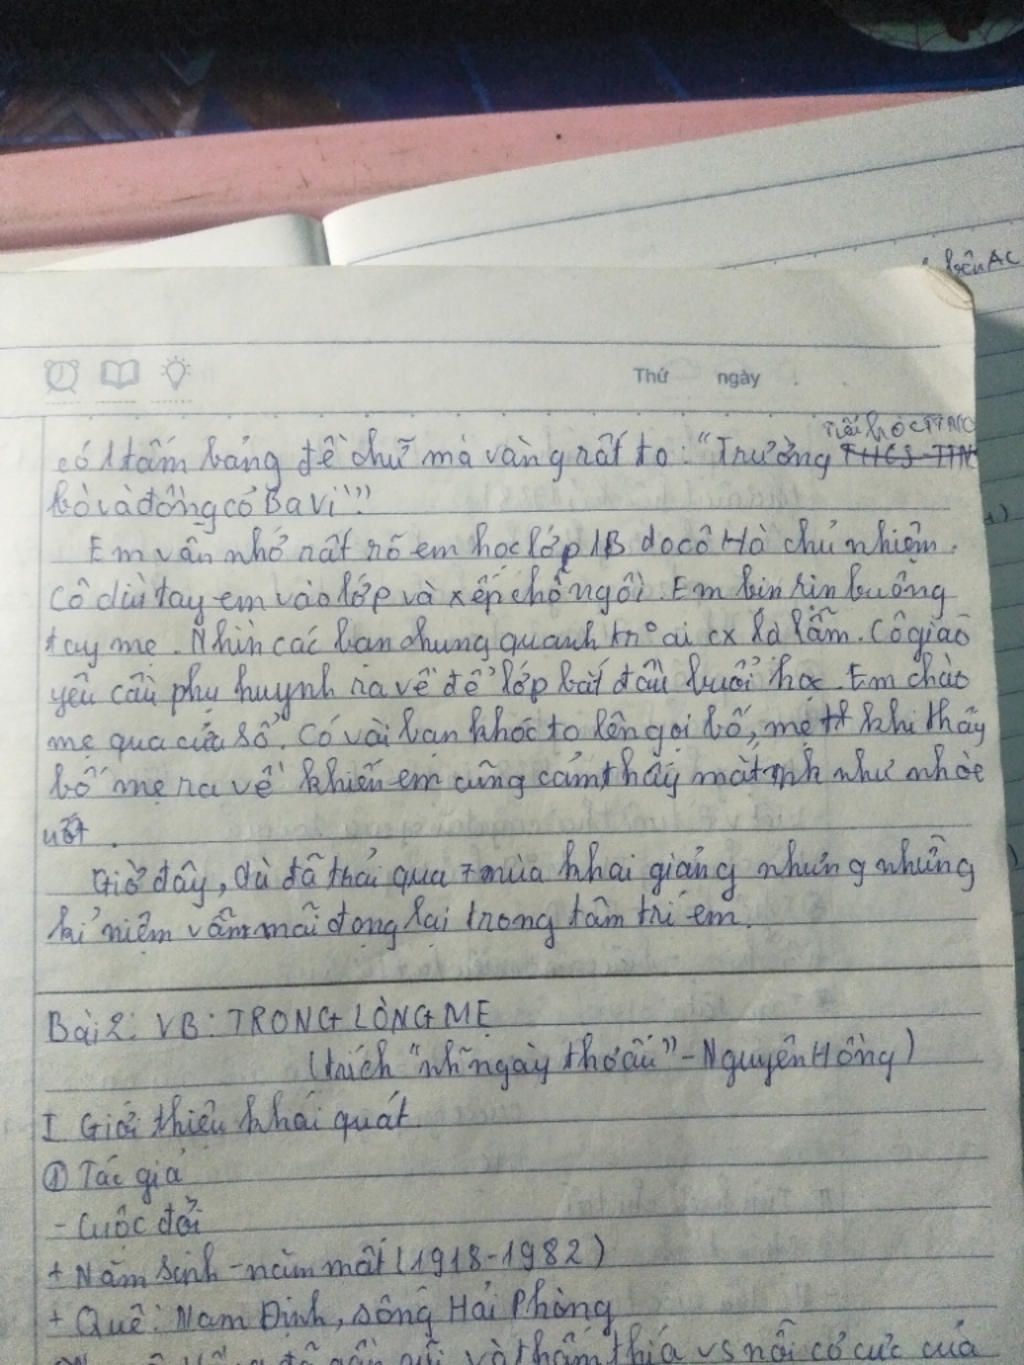 trên AC
Thứ ngày
Tiểu học TTNC
có 1 tấm bảng đề chữ mà vàng rất to: "Trường THCS TTN
bò và đồng cỏ Ba Vì"."
Em vẫn nhớ rất rõ em học lớp 1B do cô Hà chủ nhiệm.
Cô dìu tay em vào lớp và xếp chỗ ngồi. Em bịn rịn buông
tay mẹ. Nhìn các bạn chung quanh trº ai cx lạ lẫm. Cô giáo
yêu cầu phụ huynh ra về để lớp bắt đầu buổi học. Em chào
mẹ qua cửa sổ. Có vài bạn khóc to lên gọi bố, mẹ khi thấy
bố mẹ ra về khiến em cũng cảm thấy mắt mk như nhòe
ướt.
Giờ đây, dù đã trải qua 7 mùa khai giảng nhưng những
kỉ niệm vẫn mãi đọng lại trong tâm trí em.
Bài 2: VB: TRONG LÒNG MẸ
(trích "nh~ ngày thơ ấu" - Nguyên Hồng)
I Giới thiệu khái quát.
① Tác giả
- Cuộc đời
+ Năm sinh - năm mất (1918-1982)
+ Quê: Nam Định, sống Hải Phòng
đã gần gũi và thấm thía vs nỗi cơ cực của